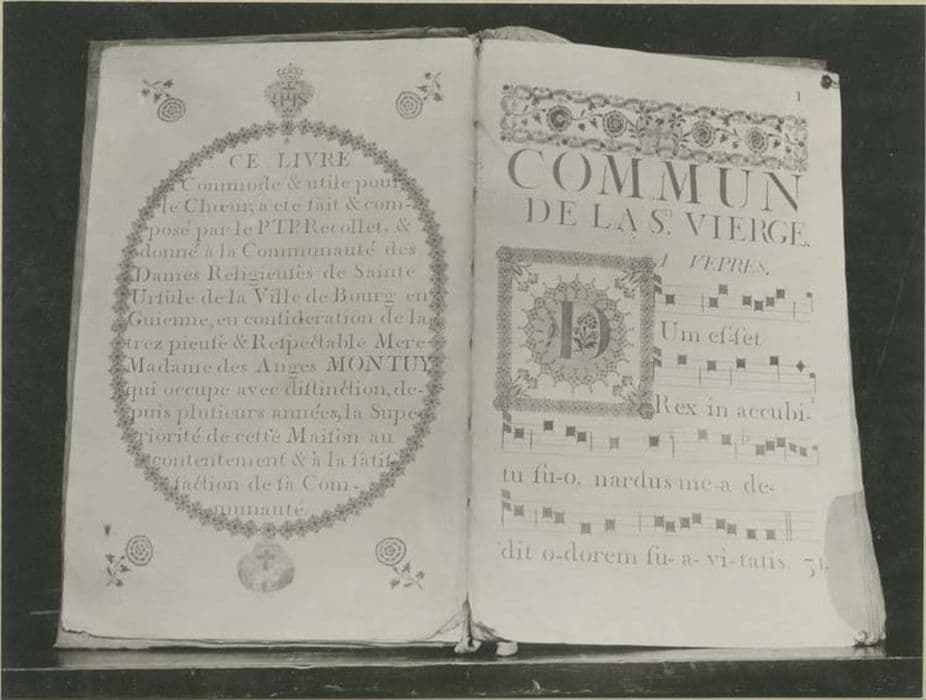 IHS
CE LIVRE
Commode & utile pour
le Chœur, a ete fait & com-
posé par le P.T.P. Recollet, &
donné à la Communauté des
Dames Religieuſes de Sainte
Urſule de la Ville de Bourg en
Guienne, en conſideration de la
trez pieuſe & Reſpectable Mere
Madame des Anges MONTUY
qui occupe avec diſtinction, de-
puis pluſieurs années, la Supe-
riorité de cette Maiſon au
contentement & à la ſatiſ-
faction de ſa Com-
munauté.
1
COMMUN
DE LA S. VIERGE.
A VEPRES.
D
Um eſ-ſet
Rex in accubi-
tu ſu-o, nardus me-a de-
dit o-dorem ſu-a-vi-tatis.